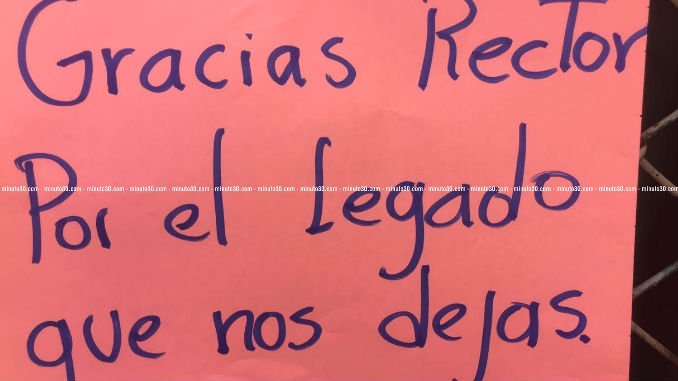 Gracias Rector
minuto30.com - minuto30.com - minuto30.com - minuto30.com - minuto30.com - minuto30.com - minuto30.com - minuto30.com - minuto30.com - minuto30.com - minuto30.com - minuto30.com - minuto30.com - minuto30.com - minuto30.com - minuto30.com
Por el Legado
que nos dejas.